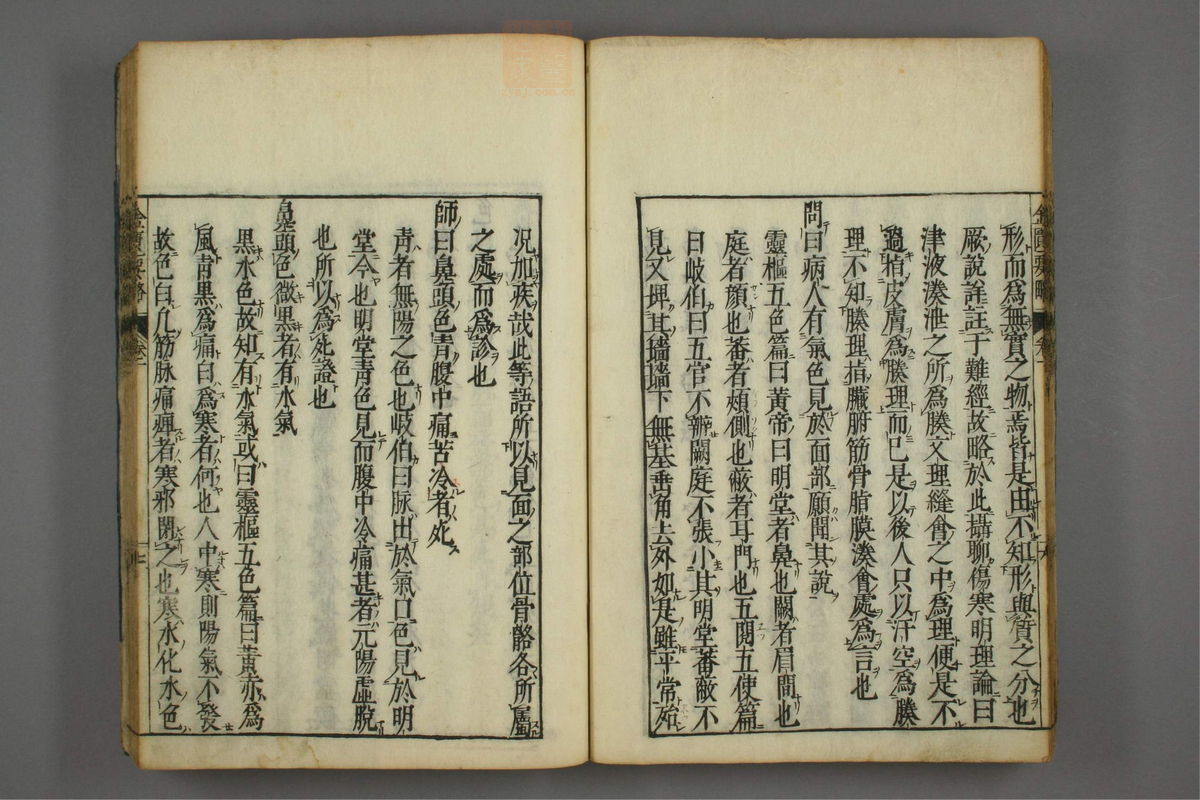 形而為無實之物焉皆是由不知形與質之分也
厥說詳註于難經故略於此攝聊傷寒明理論曰
津液湊泄之所為腠文理縫會之中為理便是不
過指皮膚為腠理而已是以後人只以汗空為腠
理不知腠理指臟腑筋骨脂膜湊會處為言也
問曰病人有氣色見於面部願聞其說
靈樞五色篇曰黃帝曰明堂者鼻也闕者眉間也
庭者顏也蕃者頰側也蔽者耳門也五閱五使篇
曰岐伯曰五官不辨闕庭不張小其明堂蕃蔽不
見又埤其墻墻下無基垂角去外如是雖平常殆
金匱要略
卷一
況加疾哉此等語所以見面之部位骨骼各所屬
之處而為診也
師曰鼻頭色青腹中痛苦冷者死
青者無陽之色也岐伯曰脉出於氣口色見於明
堂今也明堂青色見而腹中冷痛甚者元陽虛脫
也所以為死證也
鼻頭色微黑者有水氣
黑水色故知有水氣或曰靈樞五色篇曰黃赤為
風青黑為痛曰為寒者何也人中寒則陽氣不發
故色白凡筋脉痛痺者寒邪閉之也寒水化水色
金匱要略
卷一